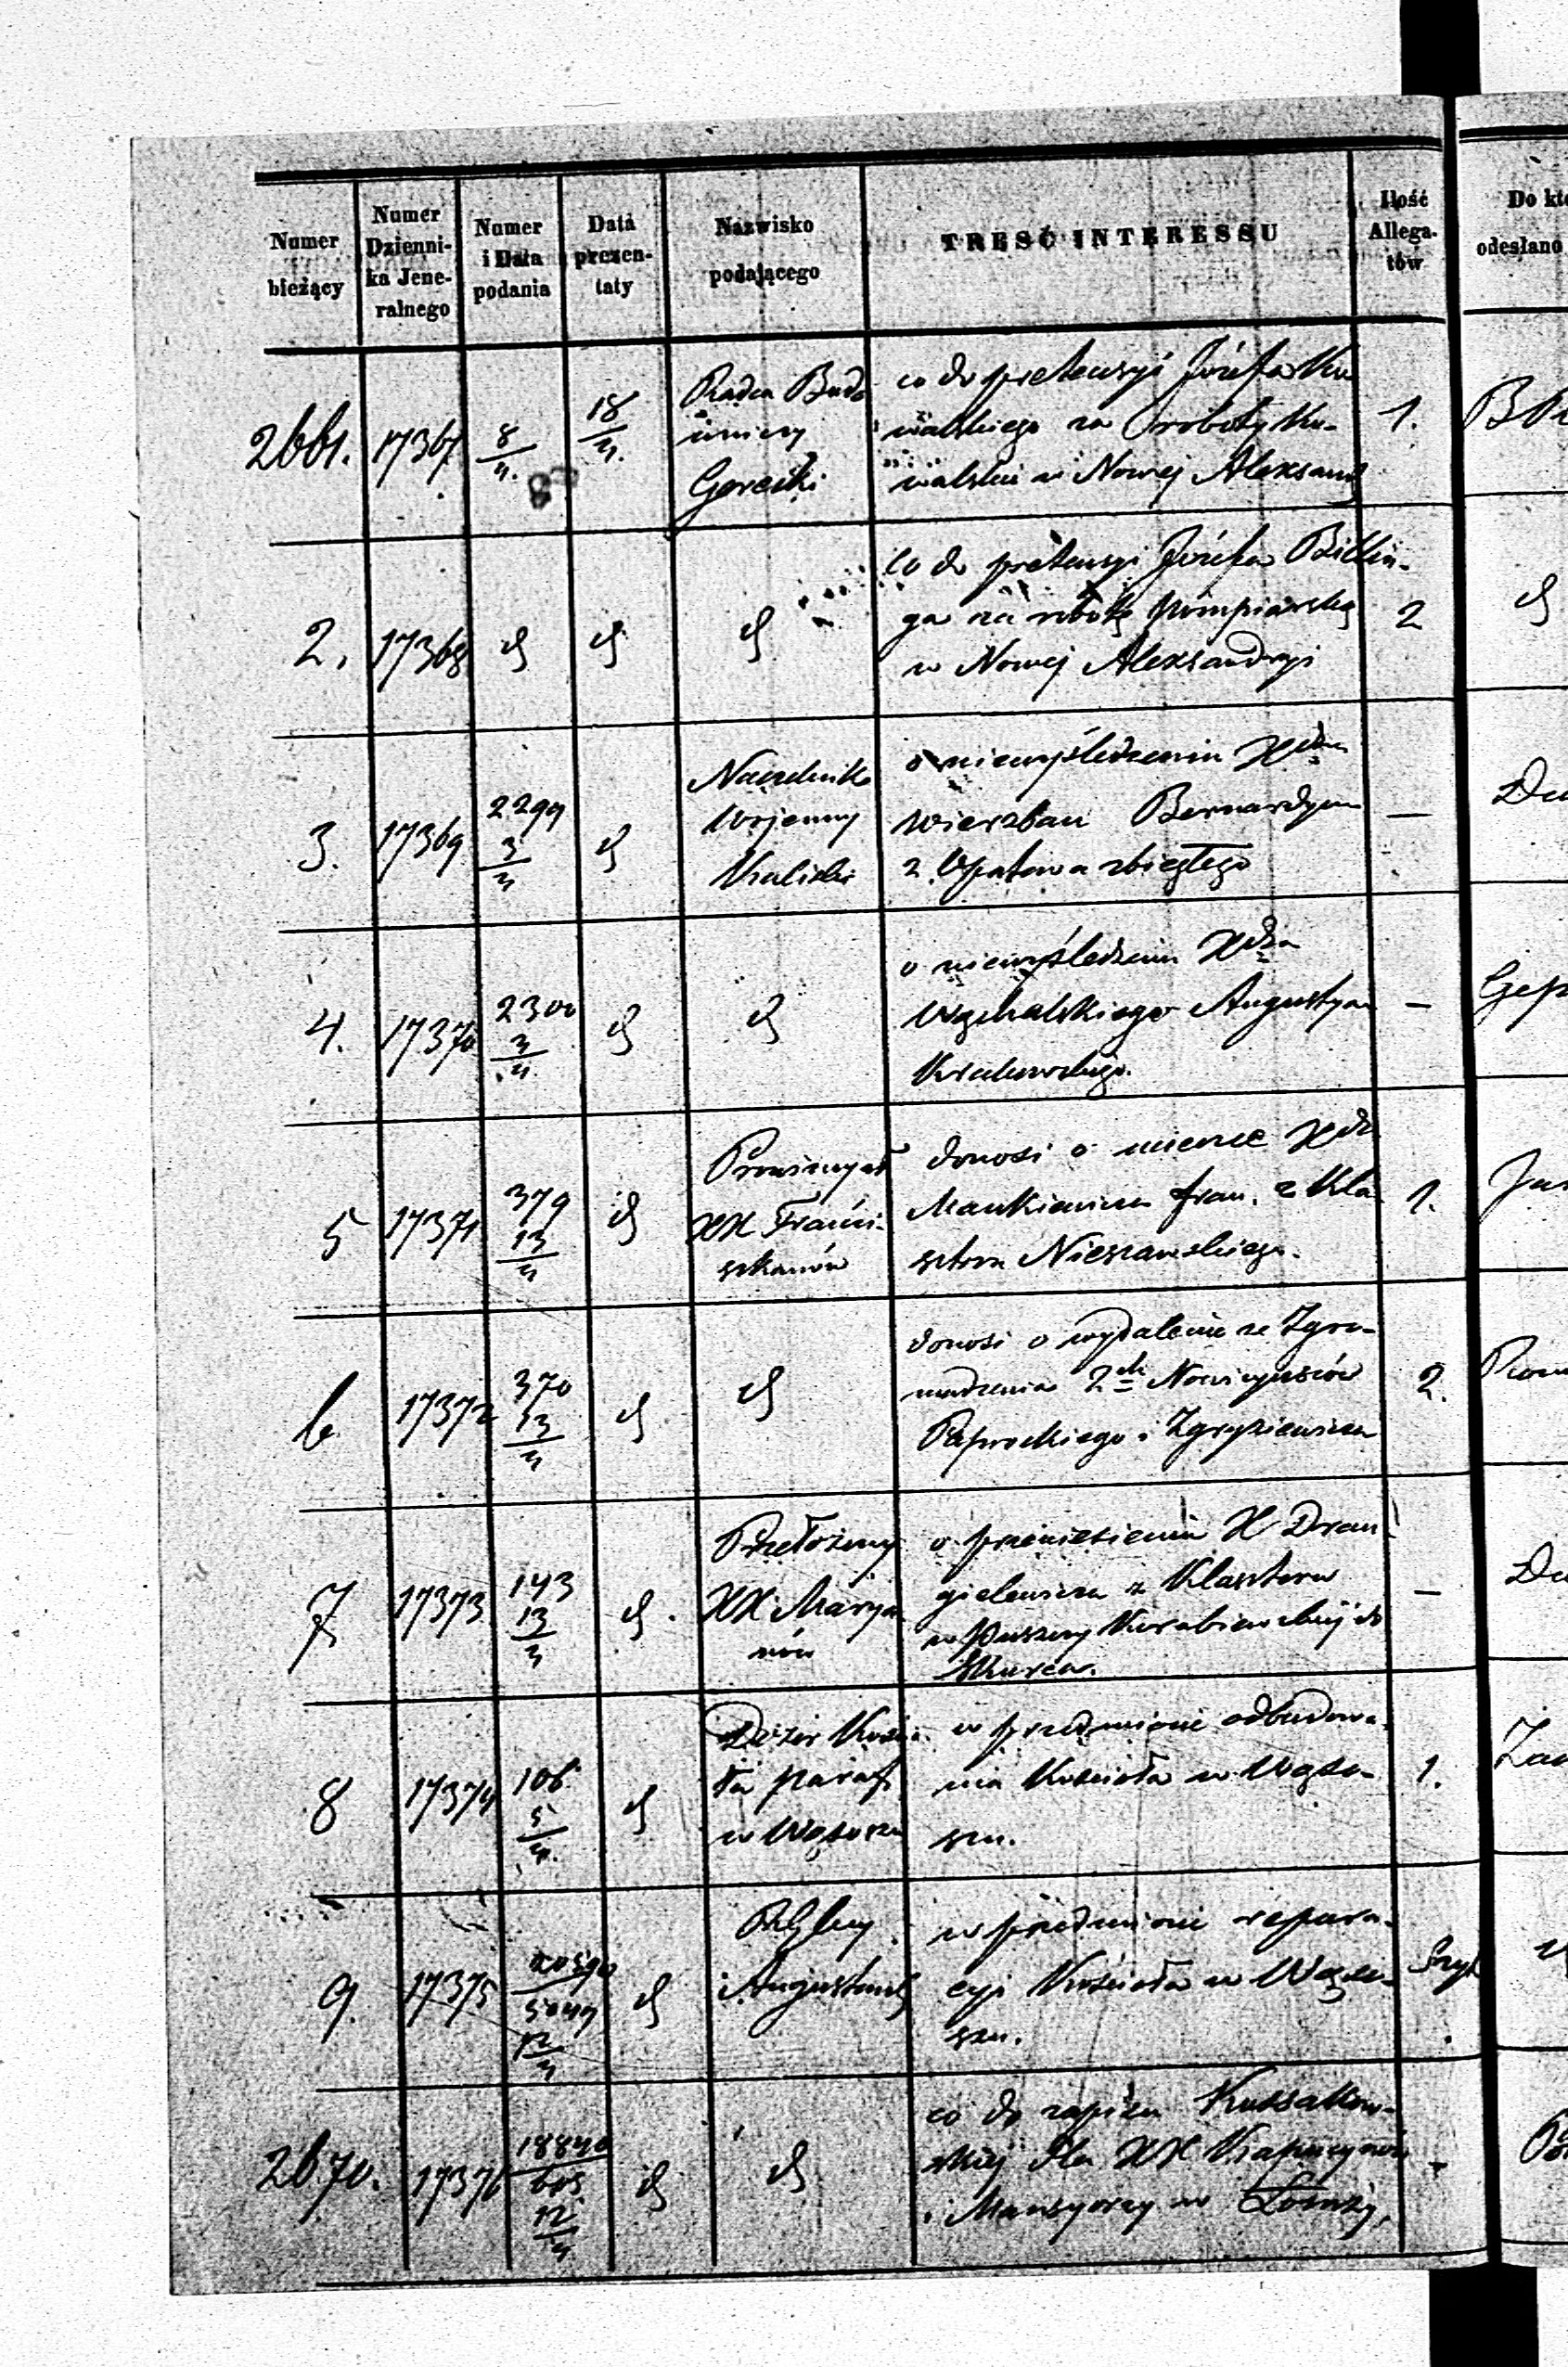 Numer bieżący
Numer Dzienni-ka Jene-ralnego
Numer i Data podania
Data prezen-taty
Nazwisko podającego
TREŚĆ INTERESSU
Ilość Allega-tów
odesłano
2661. 17367 8/4. 18/4.
Radca Budo
wniczy
Gorecki
co do pretensyi Józefa Ko
walskiego za roboty ko-
walskie w Nowej Alexand
1.
2. 17368
co do pretensyi Józefa
ga za robotę pompiarską
w Nowej Alexandryi
2
3. 17369 2299 3/4
Naczelnik
Wojenny
Kaliski
o niewyśledzeniu Xdza
Wierzban Bernardyna
z Opatowa zbiegłego
—
4. 17370 2300 3/4
o niewyśledzeniu Xdza
Augustyan
Krakowskiego.
—
5 17371 379 13/4
Prowincyał
XX Franci-
szkanów
donosi o Xdza
Mankiewicza fran. z Kla
sztoru Nieszawskiego.
1.
6 17372 370 13/4
donosi o wydalenie ze Zgro-
madzenia 2ch Nowicyuszów
Paprockiego i
2.
7 17373 143 13/4
Przełożony
XX Marya
nów
o przeniesieniu X Dran
gielewicza z Klasztoru
w Puszczy Korabiewskiej do
Skurca.
—
8 17374 106 5/4.
Dozór Kościo
ła paraf.
w Wąsoszu
w przedmiocie odbudowa-
nia Kościoła w Wąso-
szu.
1.
9. 17375 5049 12/4
Augustows
w przedmiocie repara-
cyi Kościoła w Wąso-
szu.
2670. 17376 18840 605 12/4
co do zapisu Kossakow-
skiej dla XX Kapucynów
i Mansyonarzy w Łomży,
-